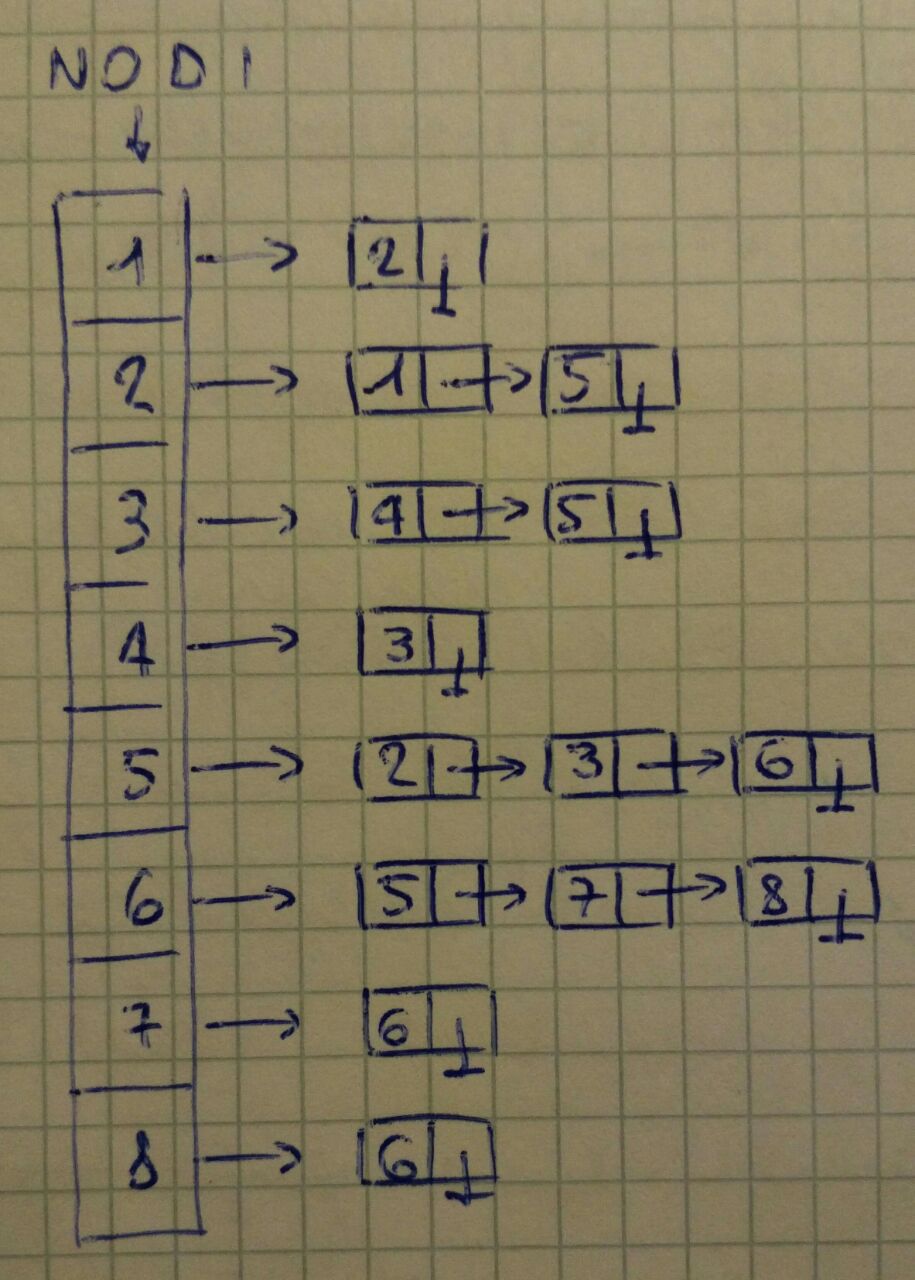 NODI
1 2
2 1 5
3 4 5
4 3
5 2 3 6
6 5 7 8
7 6
8 6